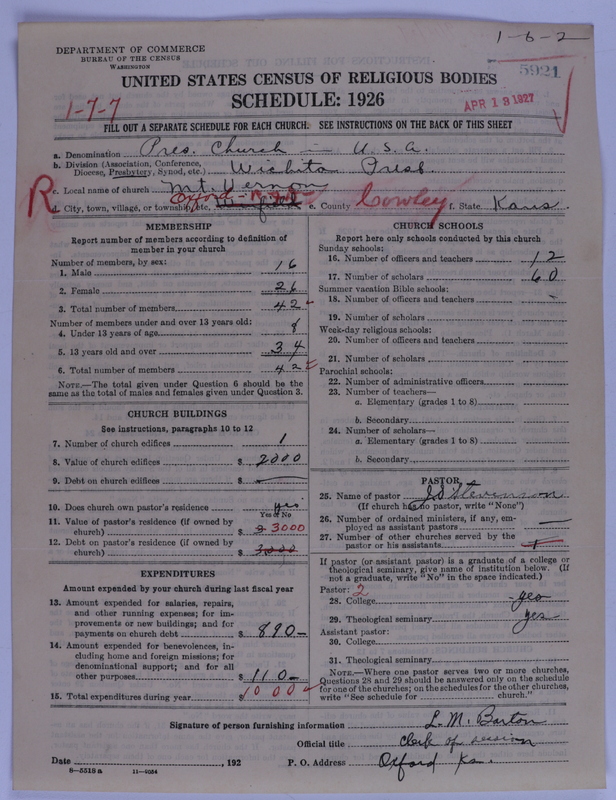 1-6-2
DEPARTMENT OF COMMERCE
BUREAU OF THE CENSUS
WASHINGTON
5921
UNITED STATES CENSUS OF RELIGIOUS BODIES
1-7-7
SCHEDULE: 1926
APR 13 1927
FILL OUT A SEPARATE SCHEDULE FOR EACH CHURCH. SEE INSTRUCTIONS ON THE BACK OF THIS SHEET
a. Denomination Pres. Church — U. S. A.
b. Division (Association, Conference, Diocese, Presbytery, Synod, etc.) Wichita Presb
R c. Local name of church Mt. Vernon
d. City, town, village, or township, etc. Oxford e. County Cowley f. State Kans.
MEMBERSHIP
Report number of members according to definition of member in your church
Number of members, by sex:
1. Male 16
2. Female 26
3. Total number of members 42
Number of members under and over 13 years old:
4. Under 13 years of age 8
5. 13 years old and over 34
6. Total number of members 42
NOTE.—The total given under Question 6 should be the same as the total of males and females given under Question 3.
CHURCH BUILDINGS
See instructions, paragraphs 10 to 12
7. Number of church edifices 1
8. Value of church edifices $ 2000
9. Debt on church edifices $ —
10. Does church own pastor's residence yes
Yes or No
11. Value of pastor's residence (if owned by church) $ 3000
12. Debt on pastor's residence (if owned by church) $ 3,000
EXPENDITURES
Amount expended by your church during last fiscal year
13. Amount expended for salaries, repairs, and other running expenses; for improvements or new buildings; and for payments on church debt $ 890—
14. Amount expended for benevolences, including home and foreign missions; for denominational support; and for all other purposes $ 110—
15. Total expenditures during year $ 1000
CHURCH SCHOOLS
Report here only schools conducted by this church
Sunday schools:
16. Number of officers and teachers 12
17. Number of scholars 60
Summer vacation Bible schools:
18. Number of officers and teachers -
19. Number of scholars
Week-day religious schools:
20. Number of officers and teachers
21. Number of scholars
Parochial schools:
22. Number of administrative officers
23. Number of teachers—
a. Elementary (grades 1 to 8)
b. Secondary
24. Number of scholars—
a. Elementary (grades 1 to 8)
b. Secondary
PASTOR
25. Name of pastor J S Stevenson
(If church has no pastor, write "None")
26. Number of ordained ministers, if any, employed as assistant pastors —
27. Number of other churches served by the pastor or his assistants 1
If pastor (or assistant pastor) is a graduate of a college or theological seminary, give name of institution below. (If not a graduate, write "No" in the space indicated.)
Pastor: 2
28. College yes
29. Theological seminary yes
Assistant pastor:
30. College
31. Theological seminary
NOTE.—Where one pastor serves two or more churches, Questions 28 and 29 should be answered only on the schedule for one of the churches; on the schedules for the other churches, write "See schedule for ______ church."
Signature of person furnishing information L. M. Barton
Official title Clerk of session
Date ______, 192 P. O. Address Oxford Ks.
8—5518 a 11—9054